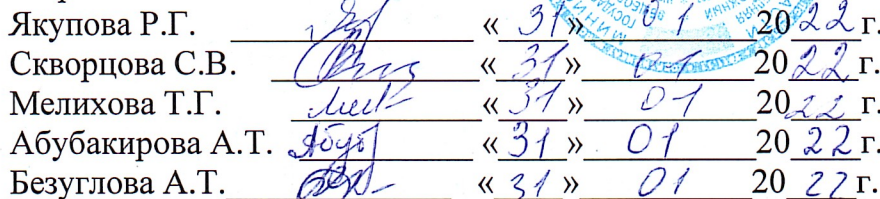 Якупова Р.Г. « 31 » 01 20 22 г.
Скворцова С.В. « 31 » 01 20 22 г.
Мелихова Т.Г. « 31 » 01 20 22 г.
Абубакирова А.Т. « 31 » 01 20 22 г.
Безуглова А.Т. « 31 » 01 20 22 г.